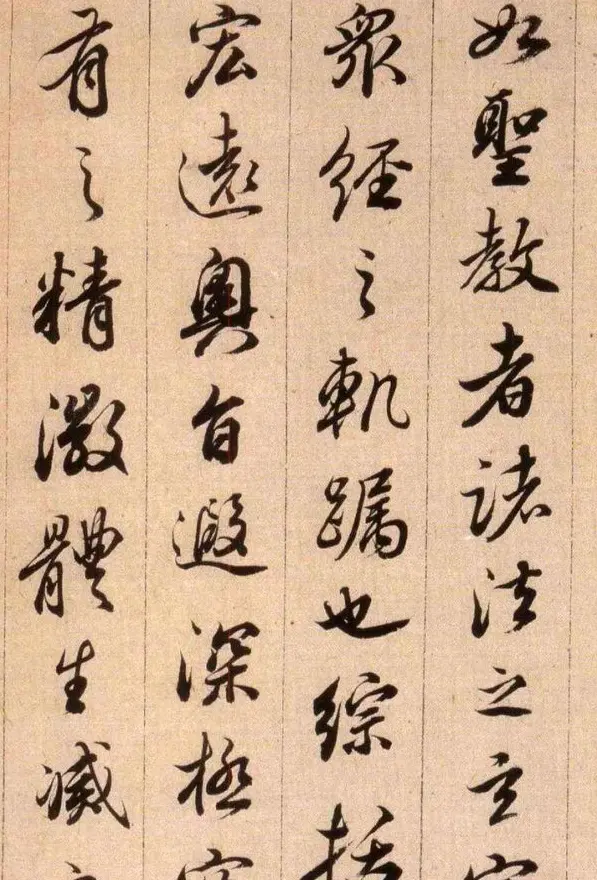 如聖教者諸法之玄宗
衆經之軌躅也綜括
宏遠奧旨遐深極空
有之精微體生滅之